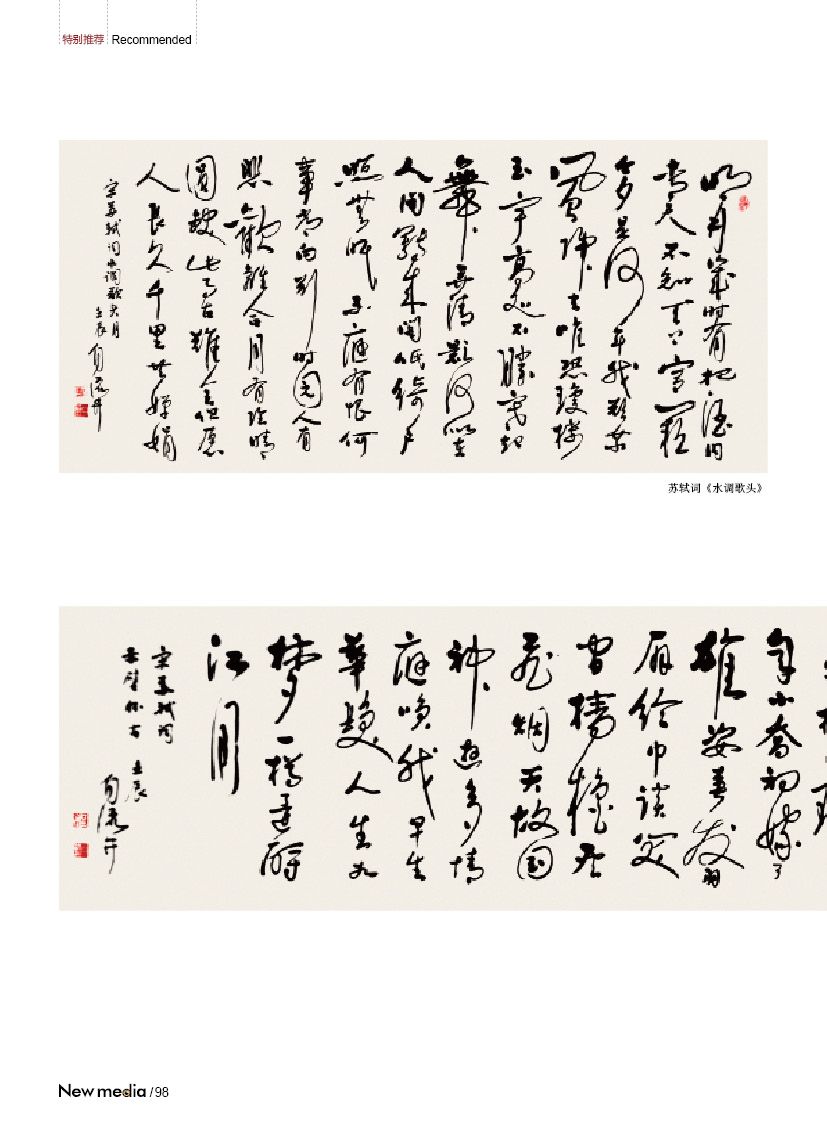 特别推荐 Recommended
明月幾时有把酒问
青天不知天上宫阙
今夕是何年我欲乘
風归去唯恐瓊楼
玉宇高处不勝寒起
舞弄清影何似在
人间转朱阁低绮户
照無眠不應有恨何
事长向别时圆人有
悲歡離合月有阴晴
圆缺此事古難全但愿
人长久千里共婵娟
宋苏轼词水调歌头月
壬辰
苏轼词《水调歌头》
年小喬初嫁了
雄姿英发羽
扇纶巾谈笑
间樯橹灰
飞烟灭故国
神遊多情
應笑我早生
華髮人生如
梦一樽还酹
江月
宋苏轼词
赤壁怀古 壬辰
New media / 98